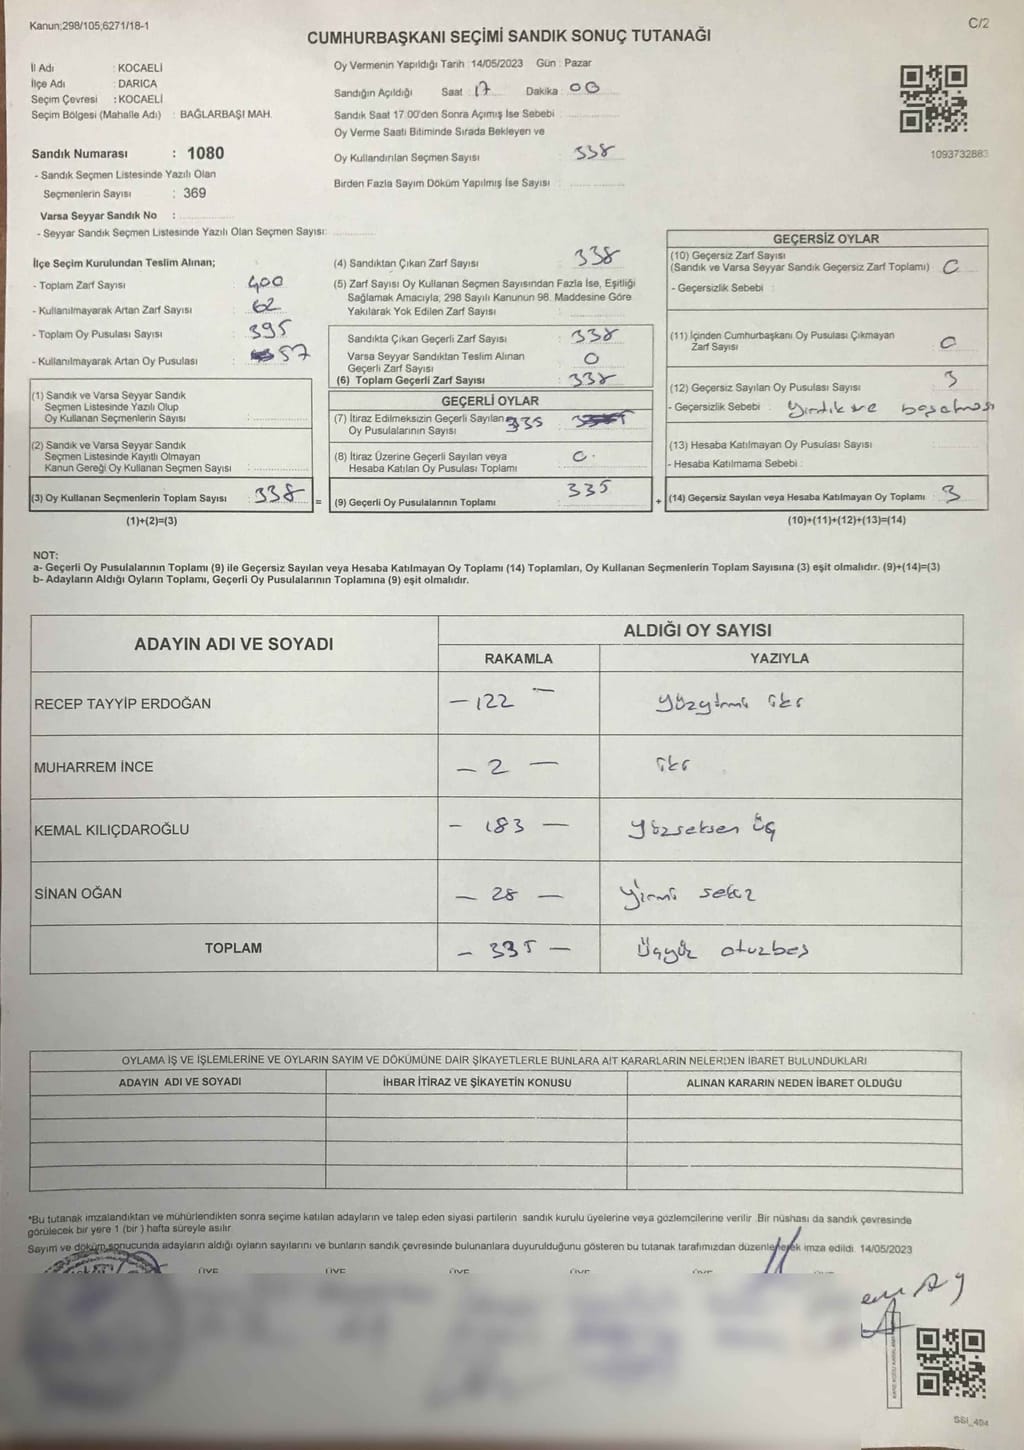 Kanun;298/105;6271/18-1
C/2
CUMHURBAŞKANI SEÇİMİ SANDIK SONUÇ TUTANAĞI
İl Adı : KOCAELİ
İlçe Adı : DARICA
Seçim Çevresi : KOCAELİ
Seçim Bölgesi (Mahalle Adı) : BAĞLARBAŞI MAH.
Oy Vermenin Yapıldığı Tarih : 14/05/2023 Gün : Pazar
Sandığın Açıldığı Saat : 17 Dakika : 00
Sandık Saat 17.00'den Sonra Açımış İse Sebebi :
Oy Verme Saati Bitiminde Sırada Bekleyen ve
Oy Kullandırılan Seçmen Sayısı : 338
Birden Fazla Sayım Döküm Yapılmış İse Sayısı :
1093732883
Sandık Numarası : 1080
- Sandık Seçmen Listesinde Yazılı Olan
Seçmenlerin Sayısı : 369
Varsa Seyyar Sandık No :
- Seyyar Sandık Seçmen Listesinde Yazılı Olan Seçmen Sayısı:
İlçe Seçim Kurulundan Teslim Alınan;
- Toplam Zarf Sayısı : 400
- Kullanılmayarak Artan Zarf Sayısı : 62
- Toplam Oy Pusulası Sayısı : 395
- Kullanılmayarak Artan Oy Pusulası : 57
(1) Sandık ve Varsa Seyyar Sandık
Seçmen Listesinde Yazılı Olup
Oy Kullanan Seçmenlerin Sayısı :
(2) Sandık ve Varsa Seyyar Sandık
Seçmen Listesinde Kayıtlı Olmayan
Kanun Gereği Oy Kullanan Seçmen Sayısı :
(3) Oy Kullanan Seçmenlerin Toplam Sayısı : 338 =
(1)+(2)=(3)
(4) Sandıktan Çıkan Zarf Sayısı : 338
(5) Zarf Sayısı Oy Kullanan Seçmen Sayısından Fazla İse, Eşitliği
Sağlamak Amacıyla; 298 Sayılı Kanunun 98. Maddesine Göre
Yakılarak Yok Edilen Zarf Sayısı :
Sandıkta Çıkan Geçerli Zarf Sayısı : 338
Varsa Seyyar Sandıktan Teslim Alınan
Geçerli Zarf Sayısı : 0
(6) Toplam Geçerli Zarf Sayısı : 338
GEÇERLİ OYLAR
(7) İtiraz Edilmeksizin Geçerli Sayılan 335
Oy Pusulalarının Sayısı
(8) İtiraz Üzerine Geçerli Sayılan veya : 0
Hesaba Katılan Oy Pusulası Toplamı
(9) Geçerli Oy Pusulalarının Toplamı : 335 +
GEÇERSİZ OYLAR
(10) Geçersiz Zarf Sayısı
(Sandık ve Varsa Seyyar Sandık Geçersiz Zarf Toplamı) : 0
- Geçersizlik Sebebi :
(11) İçinden Cumhurbaşkanı Oy Pusulası Çıkmayan
Zarf Sayısı : 0
(12) Geçersiz Sayılan Oy Pusulası Sayısı : 3
- Geçersizlik Sebebi :
(13) Hesaba Katılmayan Oy Pusulası Sayısı :
- Hesaba Katılmama Sebebi :
(14) Geçersiz Sayılan veya Hesaba Katılmayan Oy Toplamı : 3
(10)+(11)+(12)+(13)=(14)
NOT:
a- Geçerli Oy Pusulalarının Toplamı (9) ile Geçersiz Sayılan veya Hesaba Katılmayan Oy Toplamı (14) Toplamları, Oy Kullanan Seçmenlerin Toplam Sayısına (3) eşit olmalıdır. (9)+(14)=(3)
b- Adayların Aldığı Oyların Toplamı, Geçerli Oy Pusulalarının Toplamına (9) eşit olmalıdır.
ADAYIN ADI VE SOYADI
ALDIĞI OY SAYISI
RAKAMLA YAZIYLA
RECEP TAYYİP ERDOĞAN - 122 - yüzyirmi iki
MUHARREM İNCE - 2 - iki
KEMAL KILIÇDAROĞLU - 183 - yüzseksen üç
SİNAN OĞAN - 28 - yirmi sekiz
TOPLAM - 335 - üçyüz otuzbeş
OYLAMA İŞ VE İŞLEMLERİNE VE OYLARIN SAYIM VE DÖKÜMÜNE DAİR ŞİKAYETLERLE BUNLARA AİT KARARLARIN NELERDEN İBARET BULUNDUKLARI
ADAYIN ADI VE SOYADI İHBAR İTİRAZ VE ŞİKAYETİN KONUSU ALINAN KARARIN NEDEN İBARET OLDUĞU
*Bu tutanak imzalandıktan ve mühürlendikten sonra seçime katılan adayların ve talep eden siyasi partilerin sandık kurulu üyelerine veya gözlemcilerine verilir. Bir nüshası da sandık çevresinde
görülecek bir yere 1 (bir ) hafta süreyle asılır.
Sayım ve döküm sonucunda adayların aldığı oyların sayılarını ve bunların sandık çevresinde bulunanlara duyurulduğunu gösteren bu tutanak tarafımızdan düzenlenerek imza edildi. 14/05/2023
ÜYE ÜYE ÜYE ÜYE ÜYE ÜYE